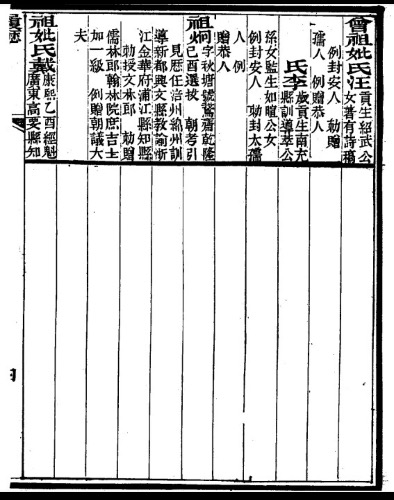 曾祖妣氏汪 貢生紹武公
女著有詩稿
例封安人 勅贈
孺人 例贈恭人
氏李 歲貢生南充
縣訓導萃公
孫女監生如暄公女
例封安人 勅封太孺
人 例
贈恭人
祖炯 字秋塘號鷺齋乾隆
己酉選拔 朝考引
見歷任涪州綿州訓
導新都興文縣教諭浙
江金華府浦江縣知縣
勅授文林郎 勅贈
儒林郎翰林院庶吉士
加一級 例贈朝議大
夫
祖妣氏戴 康熙乙酉經魁
廣東高要縣知